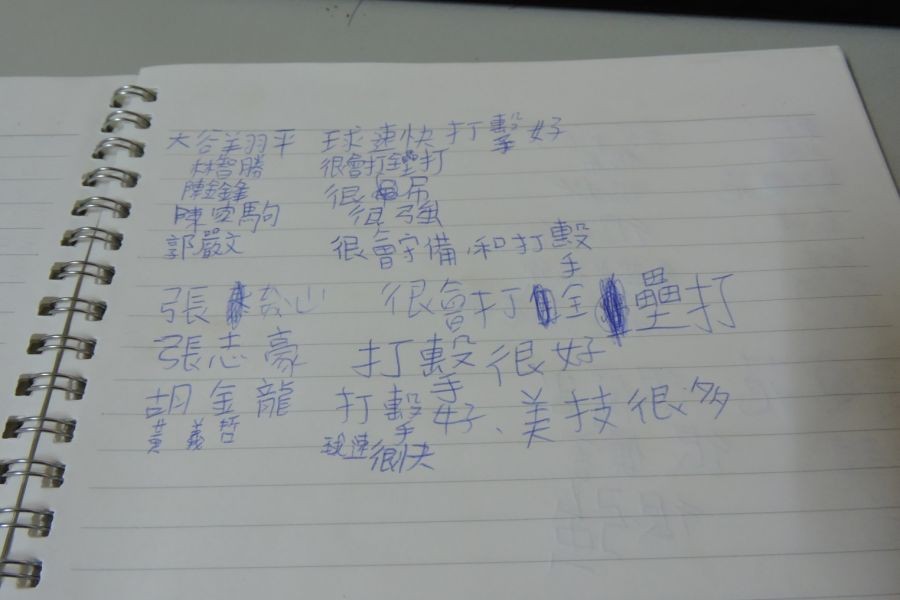 大谷羊羽平 球速快打擊好
林智勝 很會打全壘打
陳金鋒 很 吊
陳 駒 很強
郭嚴文 很會守備、和打擊
張 山 很會打全壘打
張志豪 打擊很好
胡金龍 打擊好、美技很多
黃義哲 球速很快